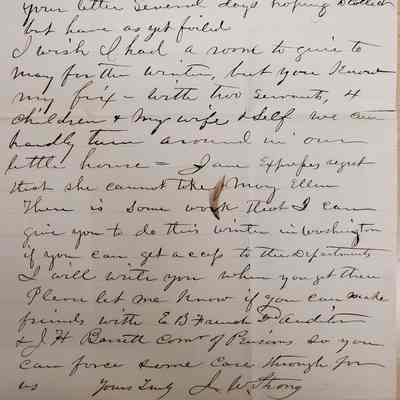 your letter several days hoping
but have as yet foiled
I wish I had a room to give to
may for the winter, but you Know
my fix - with two servants, 4
children & my wife & self we can
hardly turn around in our
little house = Jane Expresses regret
that she cannot take May Ellen
There is some work that I can
give you to do this winter in Washington
if you can get access to the Departments
I will write you when you get there
Please let me Know if you can make
friends with E B French 2nd auditor
& J H Barrett Comr of Pensions so you
can force some Cases through for
us Yours Truly W Strong